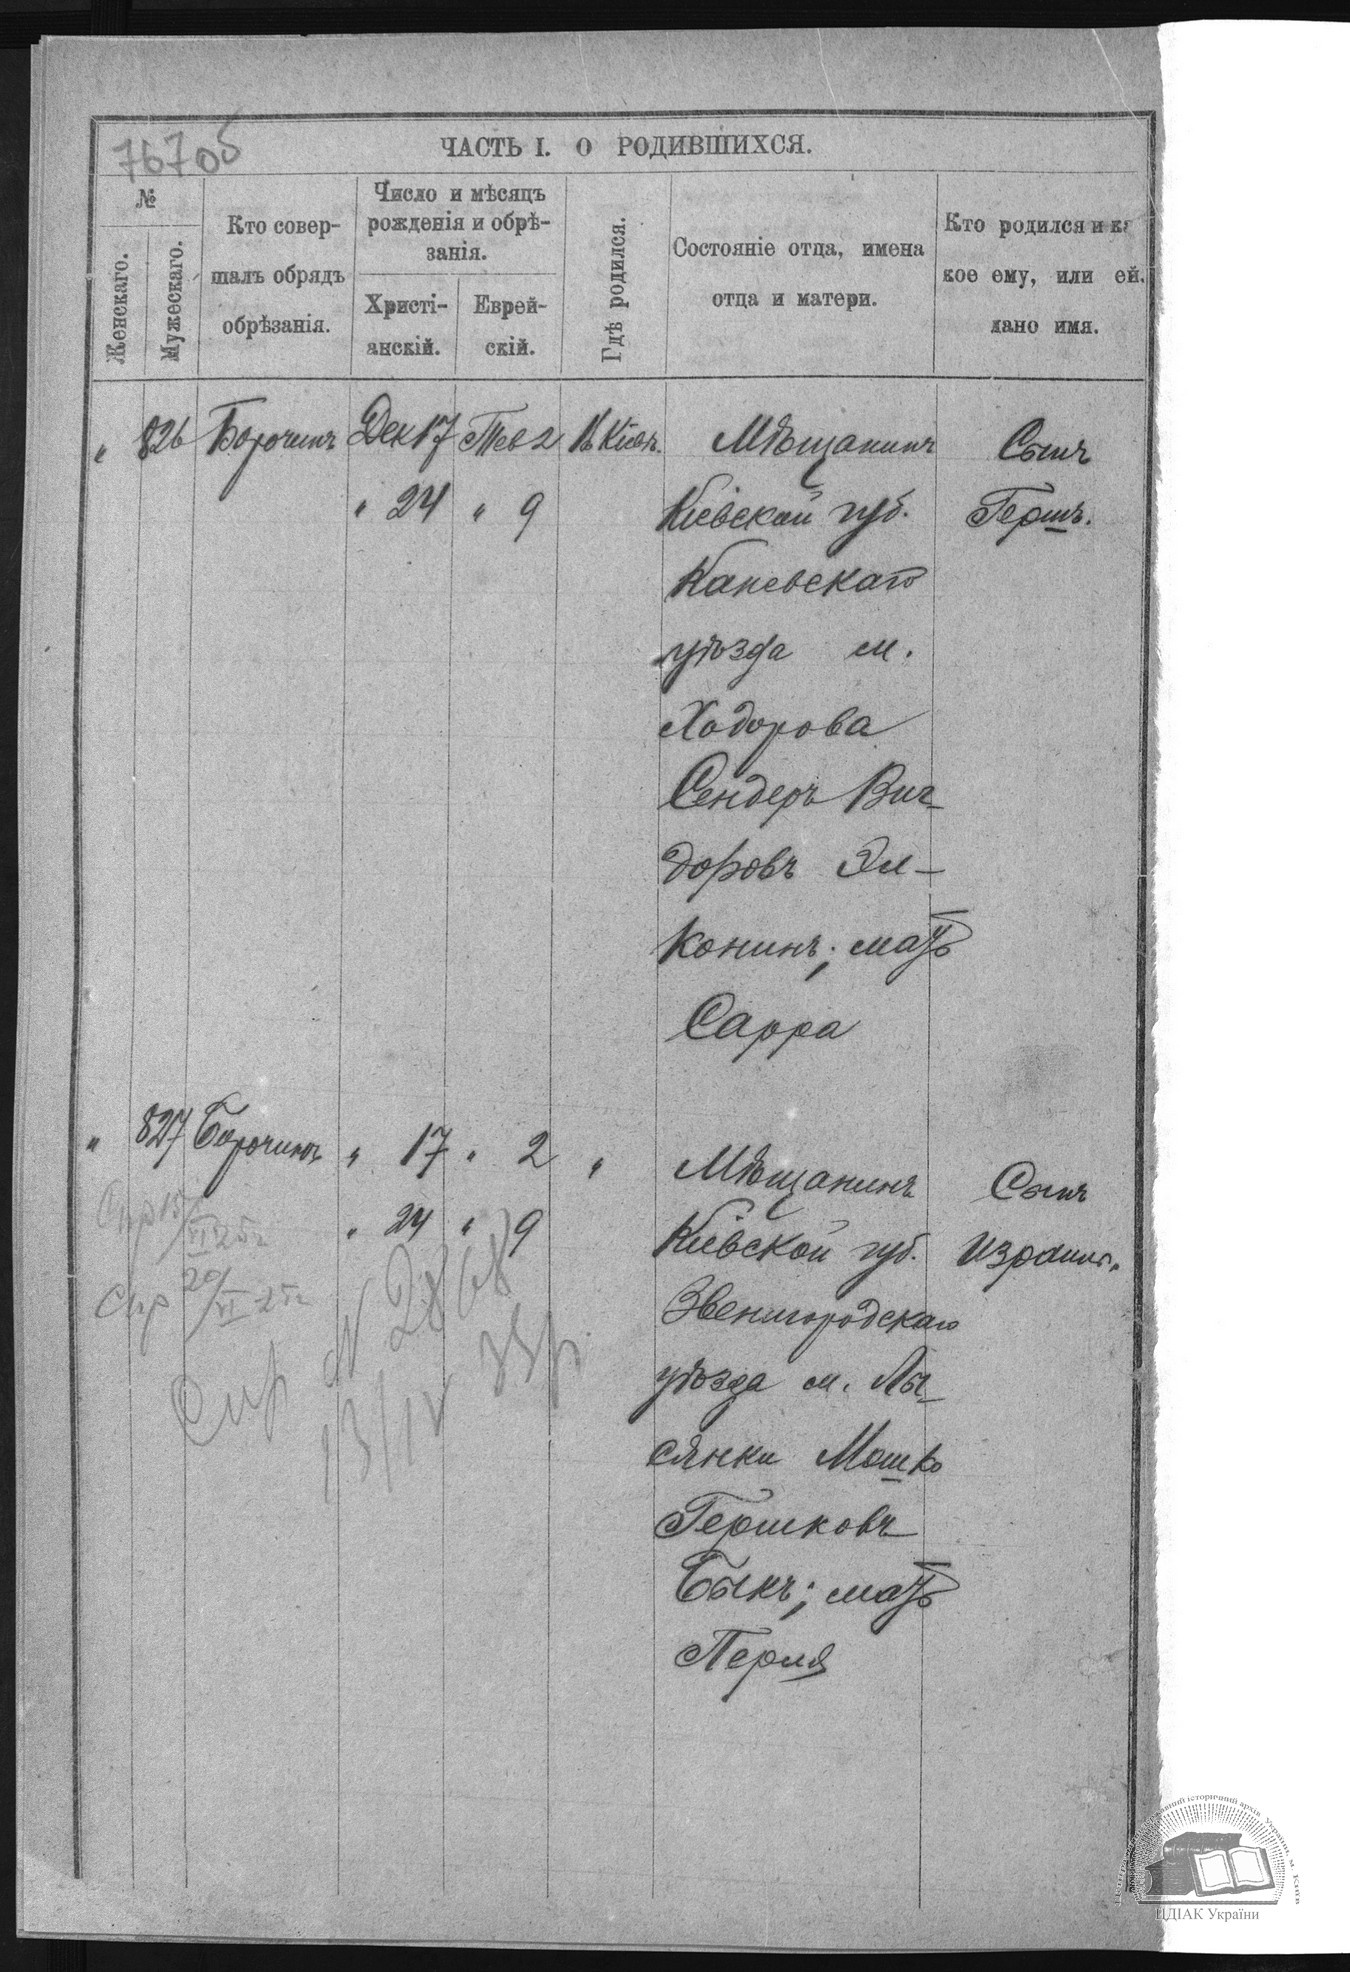 767об
ЧАСТЬ I. О РОДИВШИХСЯ.
№
Женскаго.
Мужескаго.
Кто совер-
шалъ обрядъ
обрѣзанія.
Число и мѣсяцъ
рожденія и обрѣ-
занія.
Христі-
анскій.
Еврей-
скій.
Гдѣ родился.
Состояніе отца, имена
отца и матери.
Кто родился и ка
кое ему, или ей.
дано имя.
" 826 Борочинъ Дек 17 Тев 2 Въ Кіевѣ. Мѣщанинъ Сынъ
" 24 " 9 Кіевской губ. Гершъ.
Каневскаго
уѣзда м.
Ходорова
Сендеръ Виг-
доровъ Эл-
конинъ; мать
Сарра
" 827 Борочинъ " 17 " 2 " Мѣщанинъ Сынъ
" 24 " 9 Кіевской губ. Израиль.
Звенигородскаго
уѣзда м. Лы-
сянки Мошко
Гершковъ
Быкъ; мать
Перля
Спр 15/VI 25г
Спр 20/VI-25г
Спр N 2868
13/IV
ЦДІАК України